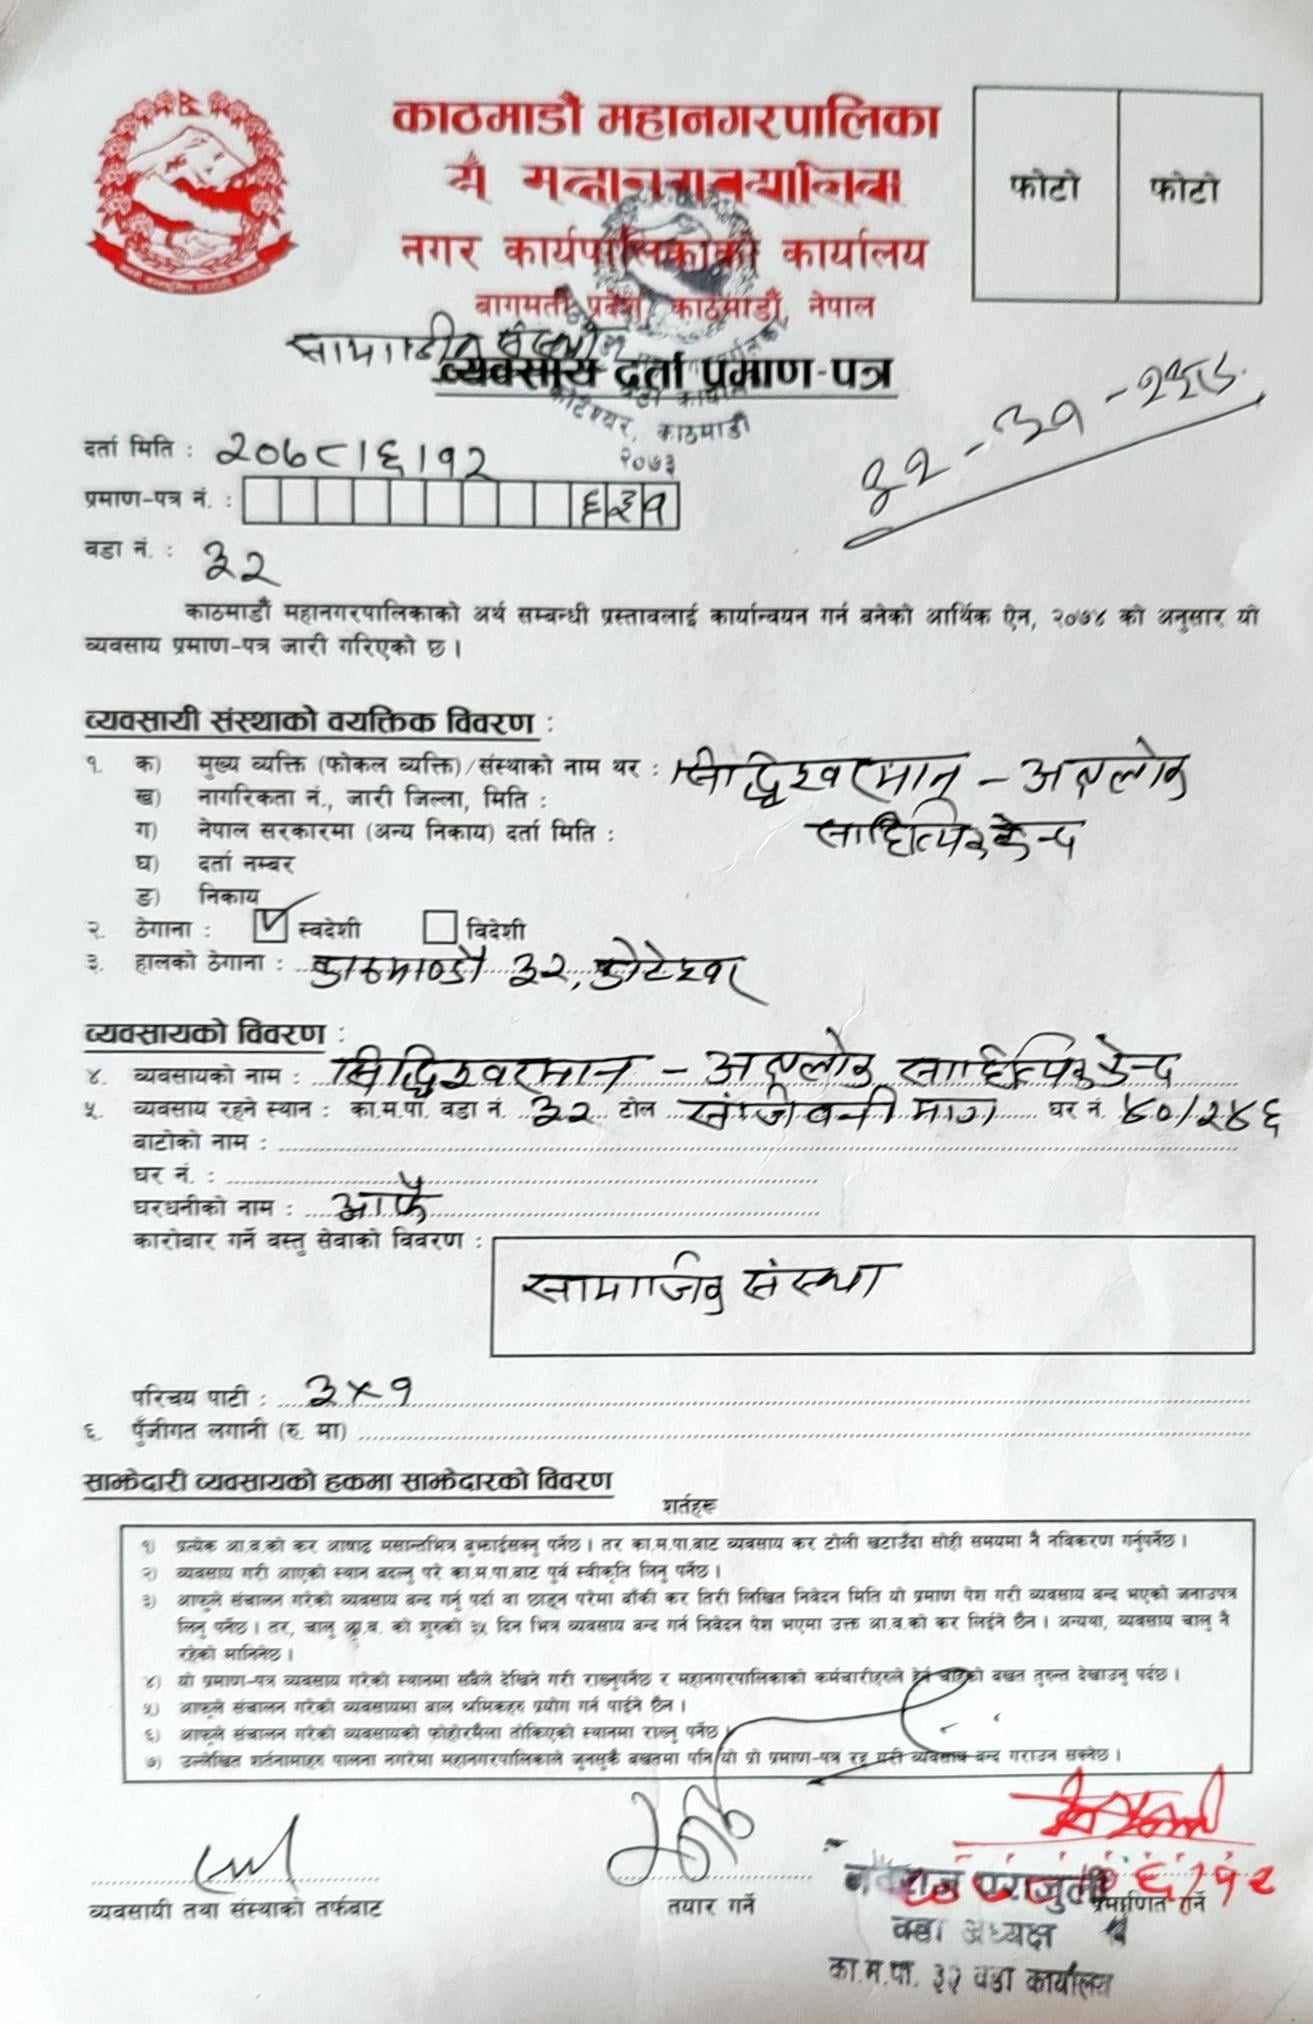 काठमाडौं महानगरपालिका
नगर कार्यपालिकाको कार्यालय
बागमती प्रदेश, काठमाडौं, नेपाल
फोटो फोटो
व्यवसाय दर्ता प्रमाण-पत्र
कोटेश्वर, काठमाडौं
२०७३
दर्ता मिति : २०७८।६।१२
प्रमाण-पत्र नं. : ६३१
वडा नं. : ३२
काठमाडौं महानगरपालिकाको अर्थ सम्बन्धी प्रस्तावलाई कार्यान्वयन गर्न बनेको आर्थिक ऐन, २०७४ को अनुसार यो
व्यवसाय प्रमाण-पत्र जारी गरिएको छ ।
व्यवसायी संस्थाको वयक्तिक विवरण :
१. क) मुख्य व्यक्ति (फोकल व्यक्ति)/संस्थाको नाम थर : सिद्धिश्वरमान -
साहित्यिक केन्द्र
ख) नागरिकता नं., जारी जिल्ला, मिति :
ग) नेपाल सरकारमा (अन्य निकाय) दर्ता मिति :
घ) दर्ता नम्बर
ङ) निकाय
२. ठेगाना : स्वदेशी विदेशी
३. हालको ठेगाना : काठमाण्डौ ३२, कोटेश्वर
व्यवसायको विवरण :
४. व्यवसायको नाम : सिद्धिश्वरमान - साहित्यिक केन्द्र
५. व्यवसाय रहने स्थान : का.म.पा. वडा नं. ३२ टोल संजिवनी मार्ग घर नं. ४०/२४६
बाटोको नाम :
घर नं. :
घरधनीको नाम : आफै
कारोबार गर्ने वस्तु सेवाको विवरण :
सामाजिक संस्था
परिचय पाटी : ३×१
६. पुँजीगत लगानी (रु. मा)
साझेदारी व्यवसायको हकमा साझेदारको विवरण
शर्तहरू
१) प्रत्येक आ.व.को कर आषाढ मसान्तभित्र बुझाईसक्नु पर्नेछ । तर का.म.पा.बाट व्यवसाय कर टोली खटाउँदा सोही समयमा नै नविकरण गर्नुपर्नेछ ।
२) व्यवसाय गरी आएको स्थान बदल्नु परे का.म.पा.बाट पुर्व स्वीकृति लिनु पर्नेछ ।
३) आफुले संचालन गरेको व्यवसाय बन्द गर्नु पर्दा वा छाड्न परेमा बाँकी कर तिरी लिखित निवेदन मिति यो प्रमाण पेश गरी व्यवसाय बन्द भएको जनाउपत्र
लिनु पर्नेछ । तर, चालु आ.व. को शुरुको ३५ दिन भित्र व्यवसाय बन्द गर्न निवेदन पेश भएमा उक्त आ.व.को कर लिईने छैन । अन्यथा, व्यवसाय चालु नै
रहेको मानिनेछ ।
४) यो प्रमाण-पत्र व्यवसाय गरेको स्थानमा सबैले देखिने गरी राख्नुपर्नेछ र महानगरपालिकाको कर्मचारीहरुले हेर्न चाहेको बखत तुरुन्त देखाउनु पर्दछ ।
५) आफुले संचालन गरेको व्यवसायमा बाल श्रमिकहरु प्रयोग गर्न पाईने छैन ।
६) आफुले संचालन गरेको व्यवसायको फोहोरमैला तोकिएको स्थानमा राख्नु पर्नेछ ।
७) उल्लेखित शर्तनामाहरु पालना नगरेमा महानगरपालिकाले जुनसुकै बखतमा पनि यो प्रमाण-पत्र रद्द गरी व्यवसाय बन्द गराउन सक्नेछ ।
व्यवसायी तथा संस्थाको तर्फबाट
तयार गर्ने
प्रमाणित गर्ने
नवराज पराजुली
वडा अध्यक्ष
का.म.पा. ३२ वडा कार्यालय